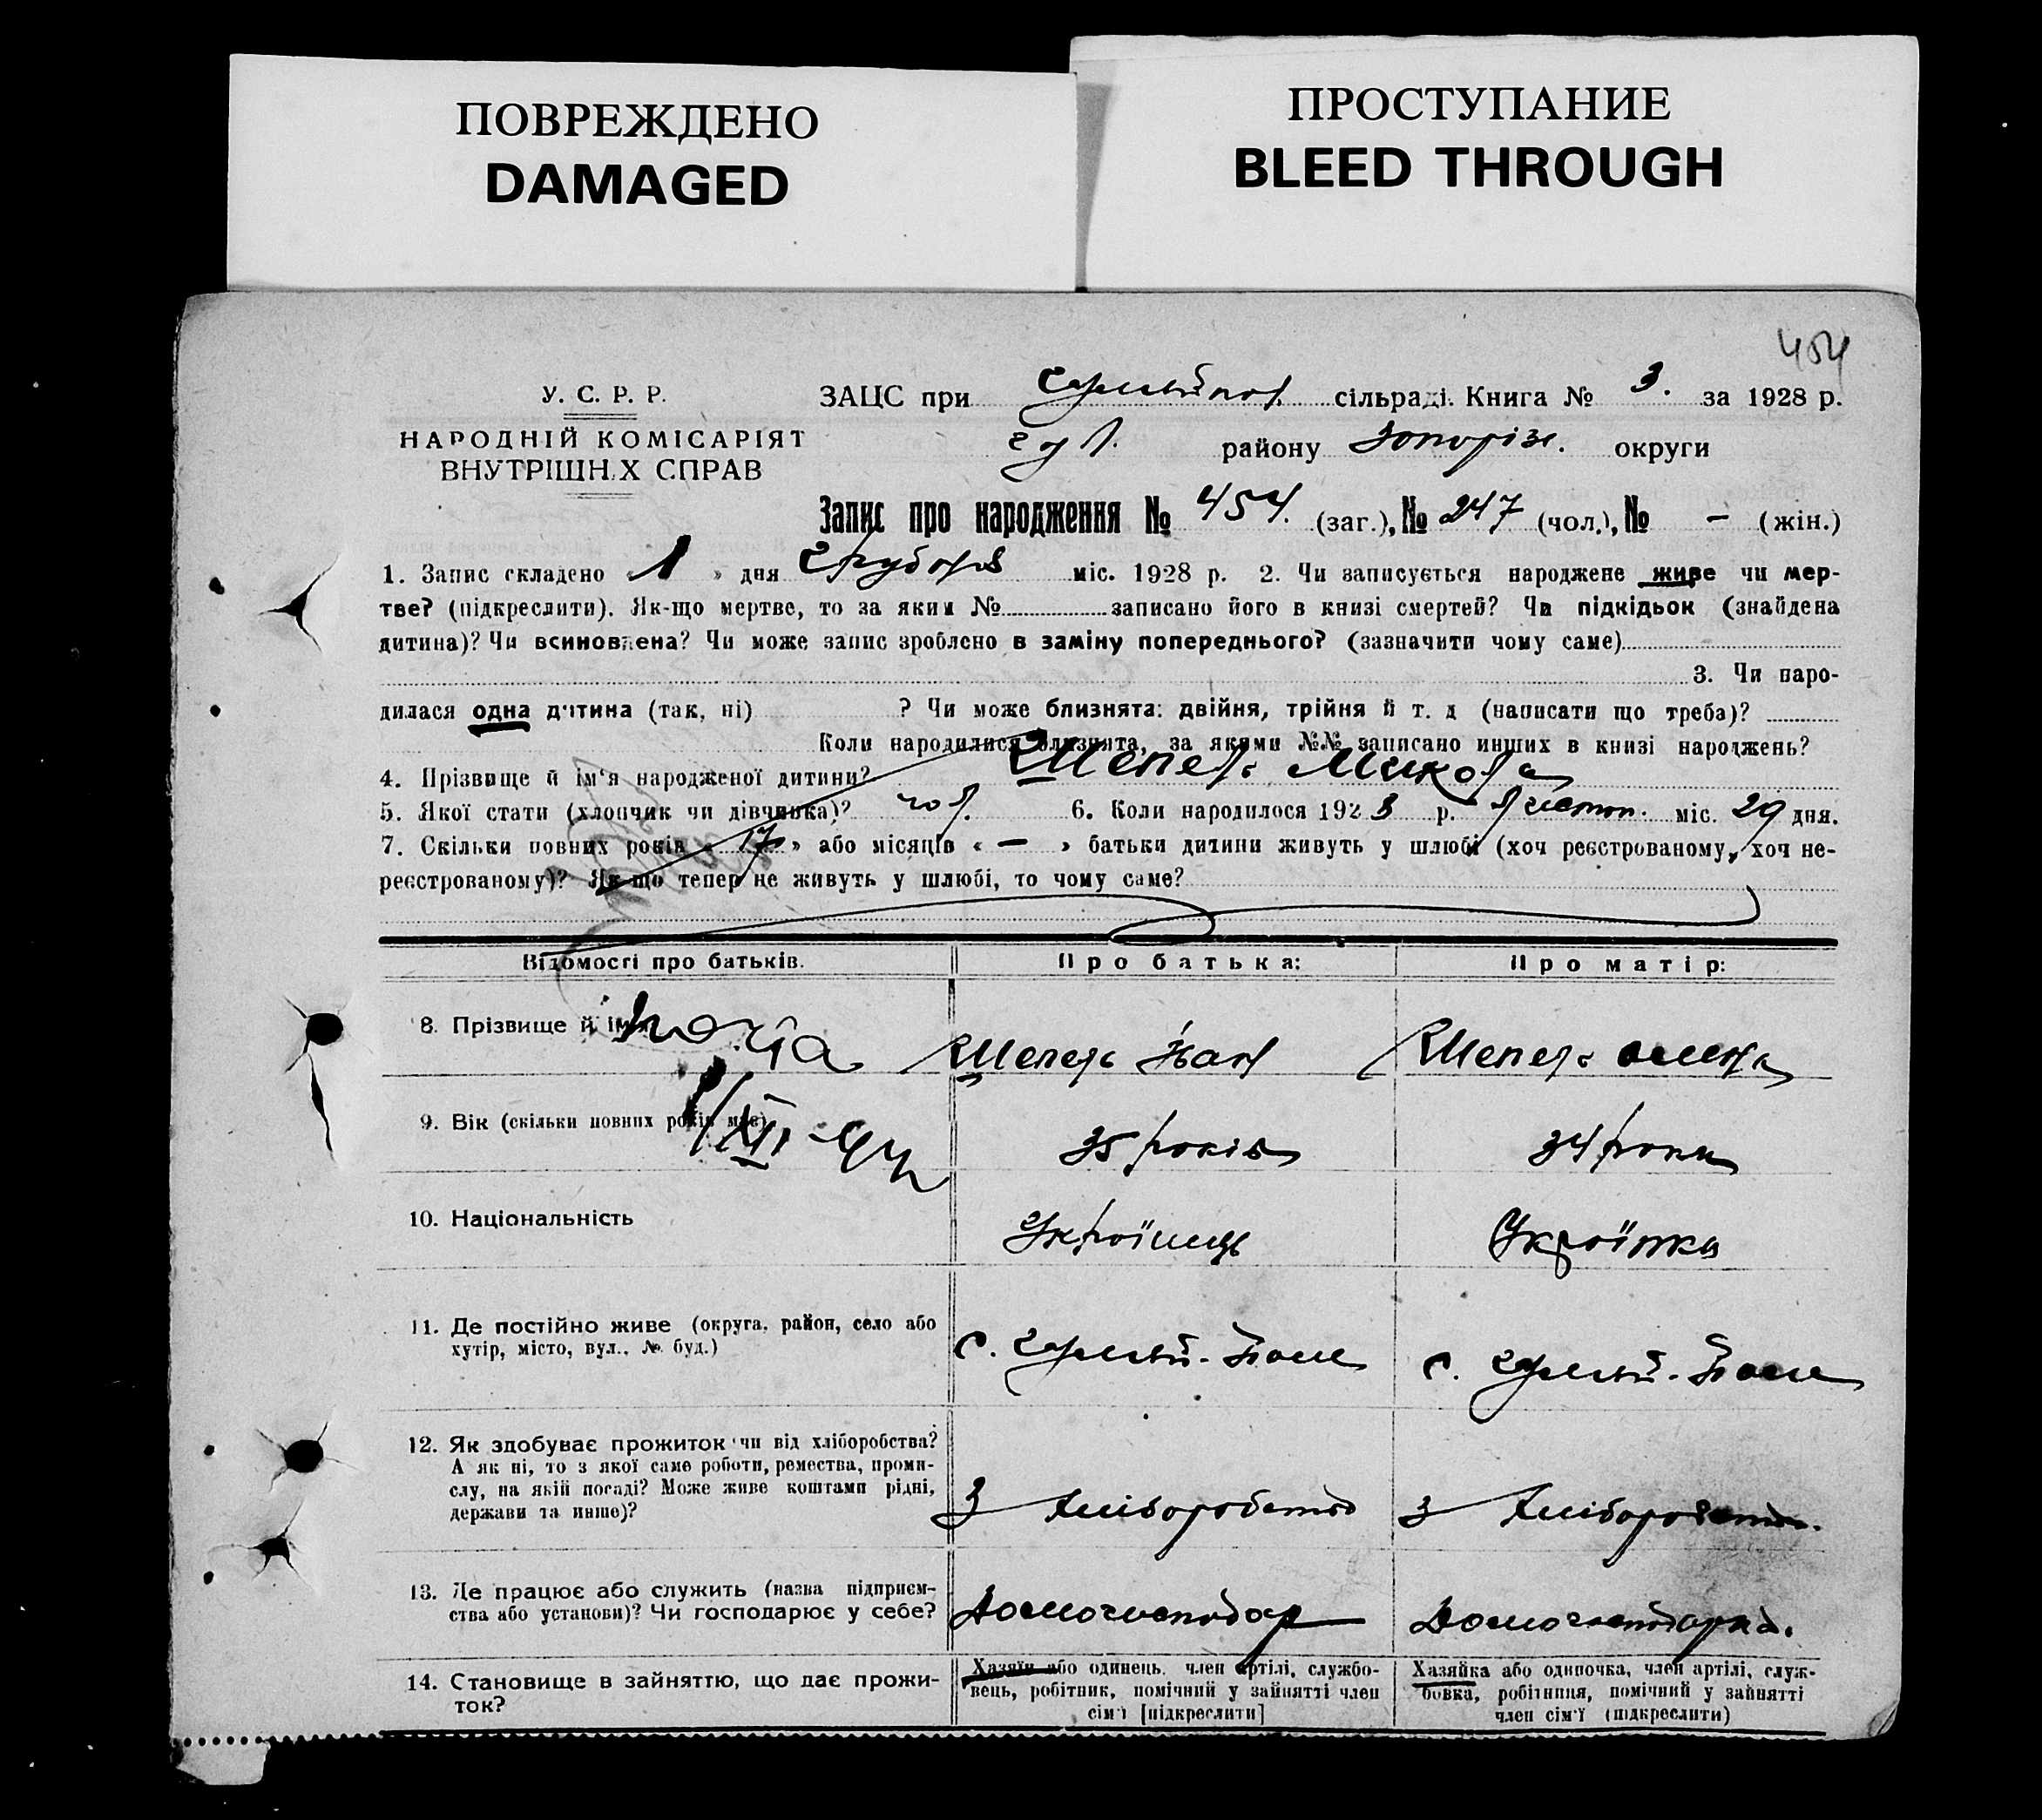 ПОВРЕЖДЕНО
DAMAGED
ПРОСТУПАНИЕ
BLEED THROUGH
454
У. С. Р. Р.
НАРОДНІЙ КОМІСАРІЯТ
ВНУТРІШН.Х СПРАВ
ЗАЦС при Гуляйпол. сільраді. Книга № 3. за 1928 р.
Гул. району Запоріж. округи
Запис про народження № 454. (заг.), № 247 (чол.), № – (жін.)
1. Запис складено « 1 » дня Грудня міс. 1928 р. 2. Чи записується народжене живе чи мер-
тве? (підкреслити). Як-що мертве, то за яким № записано його в книзі смертей? Чи підкідьок (знайдена
дитина)? Чи всиновлена? Чи може запис зроблено в заміну попереднього? (зазначити чому саме)
3. Чи наро-
дилася одна дитина (так, ні) ? Чи може близнята: двійня, трійня й т. д (написати що треба)?
Коли народилися близнята, за якими №№ записано инших в книзі народжень?
4. Прізвище й ім'я народженої дитини? Шепель Микола
5. Якої стати (хлопчик чи дівчинка)? чол. 6. Коли народилося 1928 р. Листоп. міс. 29 дня.
7. Скільки повних років « 17 » або місяців « — » батьки дитини живуть у шлюбі (хоч реєстрованому, хоч не-
реєстрованому)? Як що тепер не живуть у шлюбі, то чому саме?
Відомості про батьків. Про батька: Про матір:
8. Прізвище й ім'я Шепель Іван Шепель
9. Вік (скільки повних років має) 35 років 34 роки
1/XII-44
10. Національність Українець Українка
11. Де постійно живе (округа, район, село або
хутір, місто, вул., № буд.) с. Гуляй-Поле с. Гуляй-Поле
12. Як здобуває прожиток чи від хліборобства?
А як ні, то з якої саме роботи, ремества, проми-
слу, на якій посаді? Може живе коштами рідні,
держави та инше)? З Хліборобства З Хліборобства.
13. Де працює або служить (назва підприєм-
ства або установи)? Чи господарює у себе? Домогосподар Домогосподарка.
14. Становище в зайняттю, що дає прожи-
ток?
Хазяїн або одинець, член артілі, службо-
вець, робітник, помічний у зайнятті член
сім'ї [підкреслити]
Хазяйка або одиночка, член артілі, служ-
бовка, робітниця, помічний у зайнятті
член сім'ї (підкреслити)